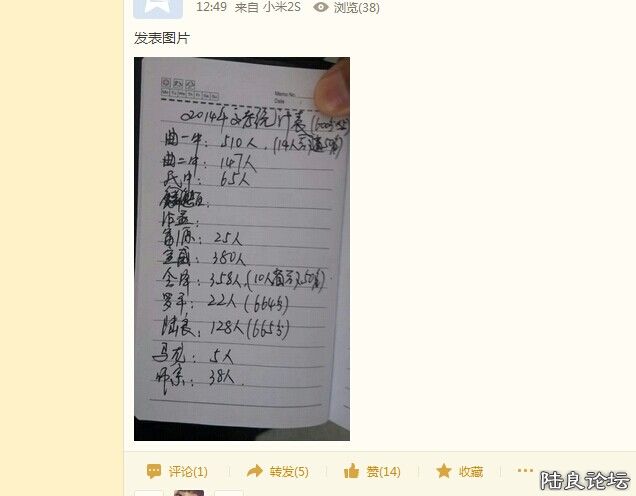 12:49 来自 小米2S 浏览(38)
发表图片
Memo No.
Mo Tu We Th Fr Sa Su
Date
2014年高考统计表(600分以上)
曲一中: 510人.(14人
曲二中: 147人
民中: 65人
沾益:
富源: 25人
宣威: 380人
会泽: 358人(10人
罗平: 22人(664分)
陆良: 128人(665分)
马龙: 5人
师宗: 38人.
评论(1) 转发(5) 赞(14) 收藏 ...
陆良论坛